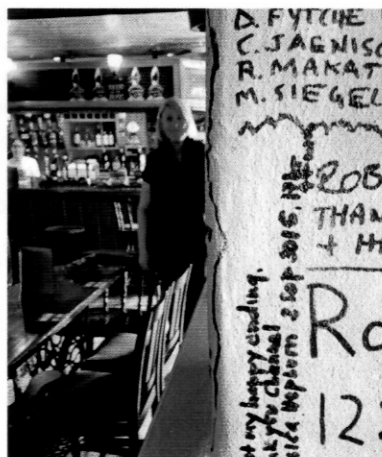 D. FYTCHE
C. JAENISC
R. MAKAT
M. SIEGEL
ROB
THAN
+ H
Ro
12
my happy ending.
Channel
Hepburn 2 Sep 2015